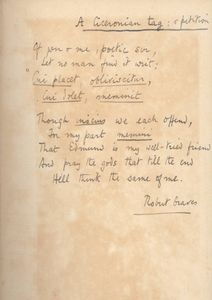 A Ciceronian tag: a petition
If you & me, poetic sir,
Let no man find it writ;
"Cui placet obliviscitur,
Cui dolet, meminit
Though inscius we each offend,
For my part memini
That Edmund is my well-tried friend
And pray the gods that till the end
He'll think the same of me.
Robert Graves